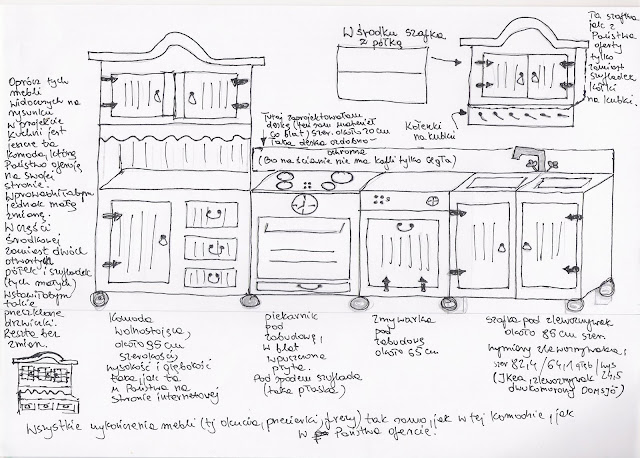 W środku szafka
z półką
Ta szafka
jak z
Państwa
oferty
tylko
zamiast
szufladek
kołki
na kubki.
Kołeczki
na kubki
Oprócz tych
mebli
widocznych na
rysunku
w projekcie
kuchni jest
jeszcze ta
komoda, którą
Państwo oferują
na swojej
stronie.
Wprowadziłabym
jednak małą
zmianę.
W części
środkowej
zamiast dwóch
otwartych
półek i szufladek
(tych małych)
wstawiłabym
takie
przeszklone
drzwiczki.
Reszta bez
zmian.
Tutaj zaprojektowałam
deskę (ten sam materiał
co blat) szer. około 20 cm
Taka deska ozdobno-
ochronna
(Bo na ścianie nie ma kafli tylko cegła)
Komoda
wolnostojąca,
około 95 cm
szerokości,
wysokość i głębokość
taka, jak ta
u Państwa na
stronie internetowej
piekarnik
pod
zabudowę,
w blat
wpuszczona
płyta.
Pod spodem szuflada
(taka płaska)
Zmywarka
pod
zabudowę
około 65 cm
szafka pod zlewozmywak
około 85 cm szer.
wymiary zlewozmywaka:
szer 82,4 / 64,1 głęb / wys 24,5
(Ikea, zlewozmywak
dwukomorowy DOMSJÖ)
Wszystkie wykończenia mebli (tj okucia, przecierki, frezy) tak samo, jak w tej komodzie, jak
w Państwa ofercie.